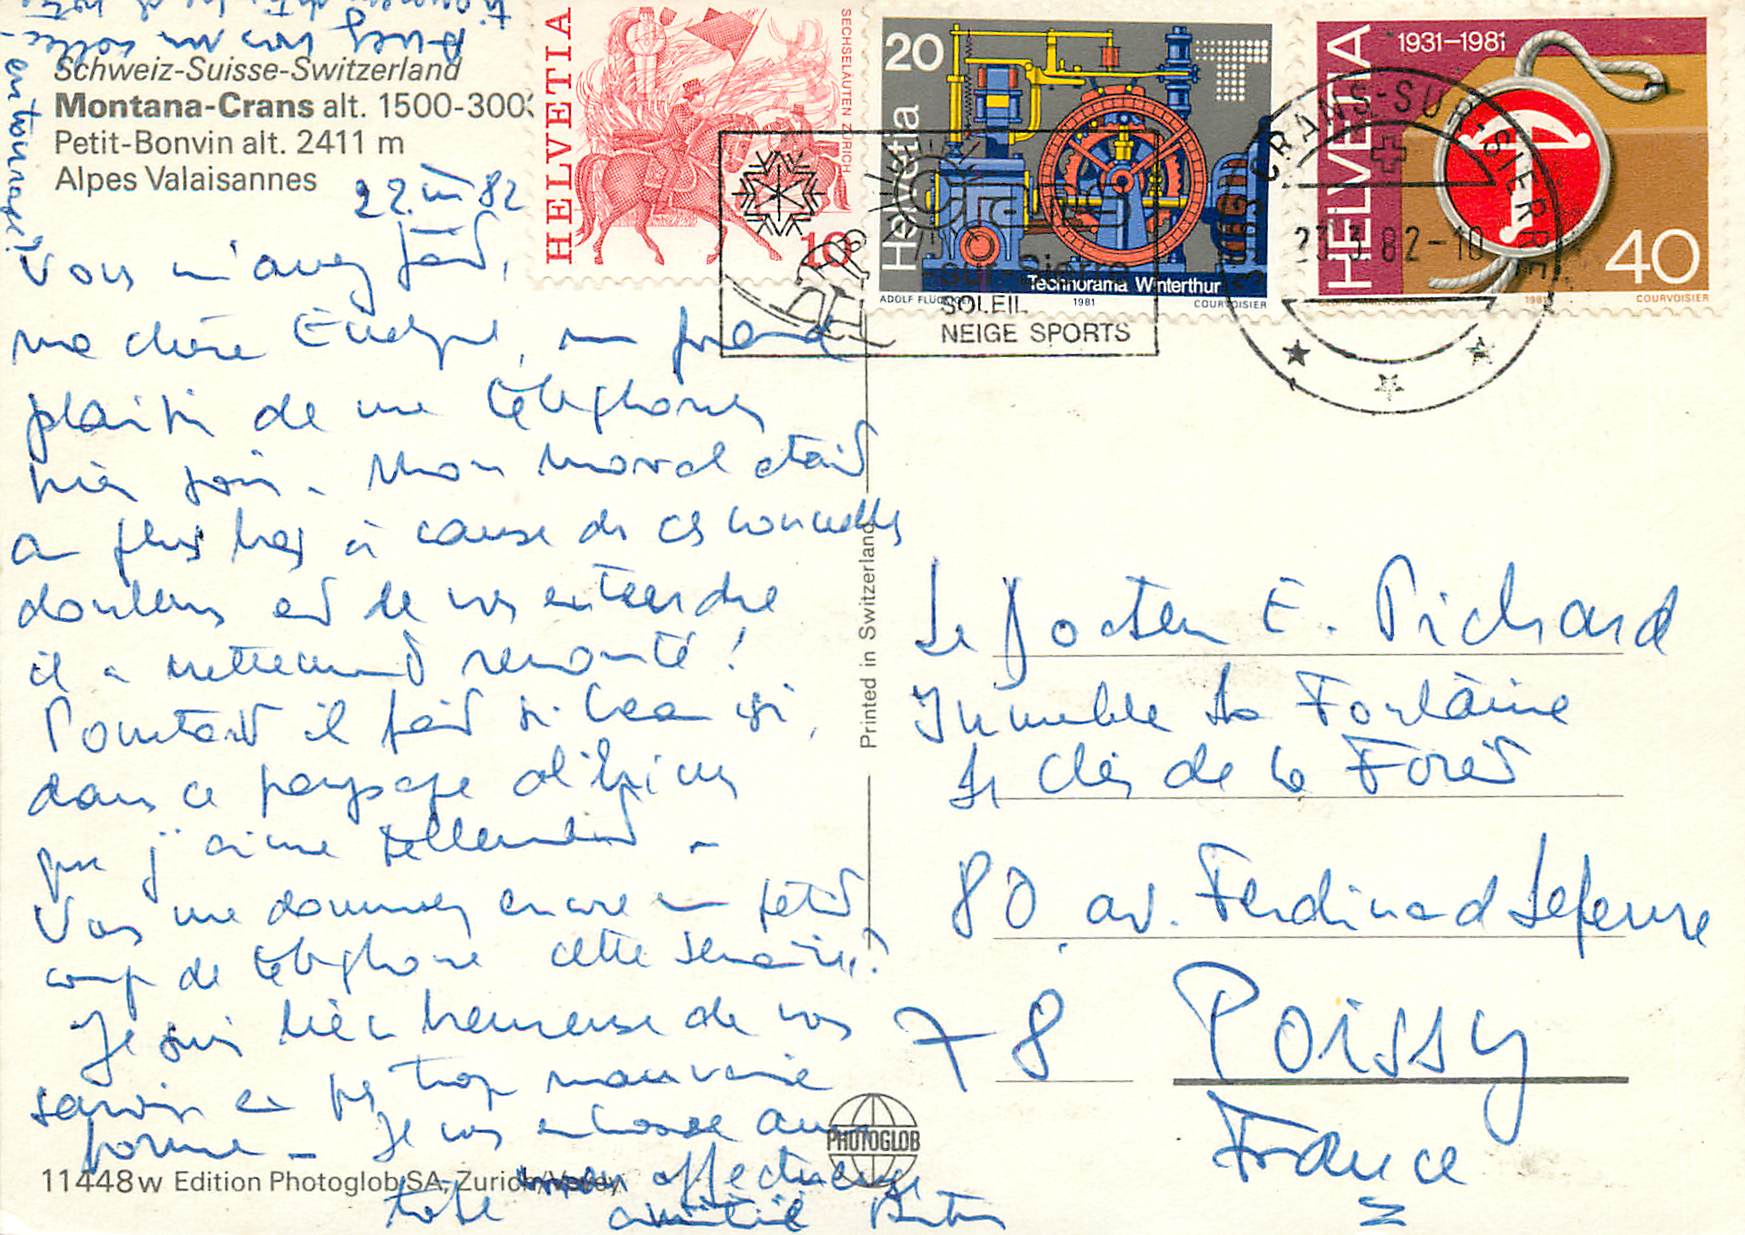 Schweiz-Suisse-Switzerland
Montana-Crans alt. 1500-300
Petit-Bonvin alt. 2411 m
Alpes Valaisannes
22 III 82
Vous m'avez fait,
ma chère, un grand
plaisir de me téléphoner
hier soir. Mon moral était
au plus bas à cause de ces nouvelles
douleurs et de vous entendre
il a nettement remonté !
Pourtant il fait si beau ici,
dans ce paysage
que j'aime tellement.
Vous me donnerez encore un petit
coup de téléphone cette semaine ?
Je suis très heureuse de vous
savoir en pas trop mauvaise
forme. Je vous embrasse avec
toute affectueuse
amitié
en tournage !
HELVETIA
SECHSELÄUTEN ZÜRICH
10
20
Helvetia
Technorama Winterthur
ADOLF FLÜCKIGER 1981 COURVOISIER
HELVETIA
1931-1981
40
1981 COURVOISIER
Crans
sur Sierre
SOLEIL
NEIGE SPORTS
CRANS-SUR-SIERRE
23.3.82-10
Printed in Switzerland
Le Docteur E. Pichard
Immeuble La Fontaine
Le Clos de la Forêt
80 av. Ferdinand Lefèvre
78 Poissy
France
PHOTOGLOB
11448w Edition Photoglob SA, Zurich/Vevey